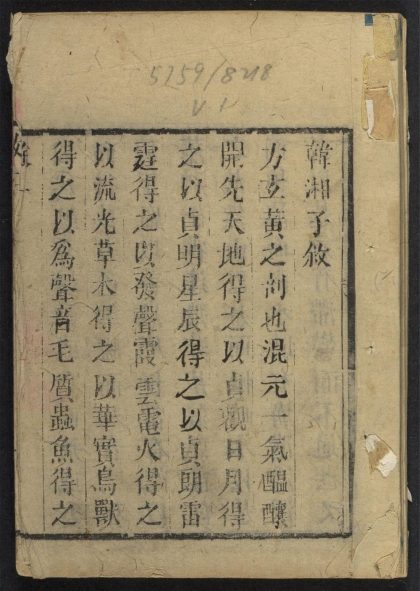 5759/8218
V 1
韓湘子敘
方玄黃之剖也混元一氣醞釀
開先天地得之以貞觀日月得
之以貞明星辰得之以貞朗雷
霆得之以發聲霞雲電火得之
以流光草木得之以華實鳥獸
得之以爲聲音毛質蟲魚得之